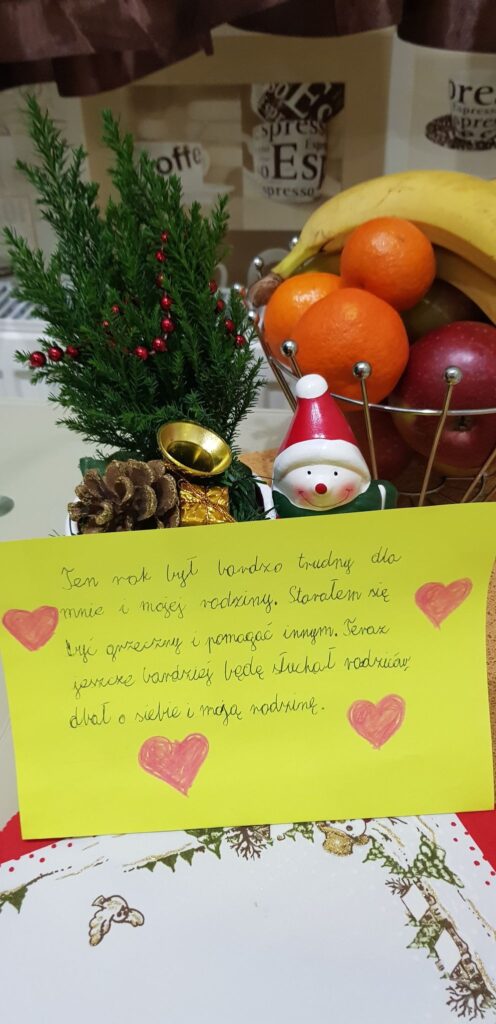 offe
Espresso
spresso
Esp
spresso
pre
Espresso
Ten rok był bardzo trudny dla
mnie i mojej rodziny. Starałem się
być grzeczny i pomagać innym. Teraz
jeszcze bardziej będę słuchał rodziców,
dbał o siebie i moją rodzinę.